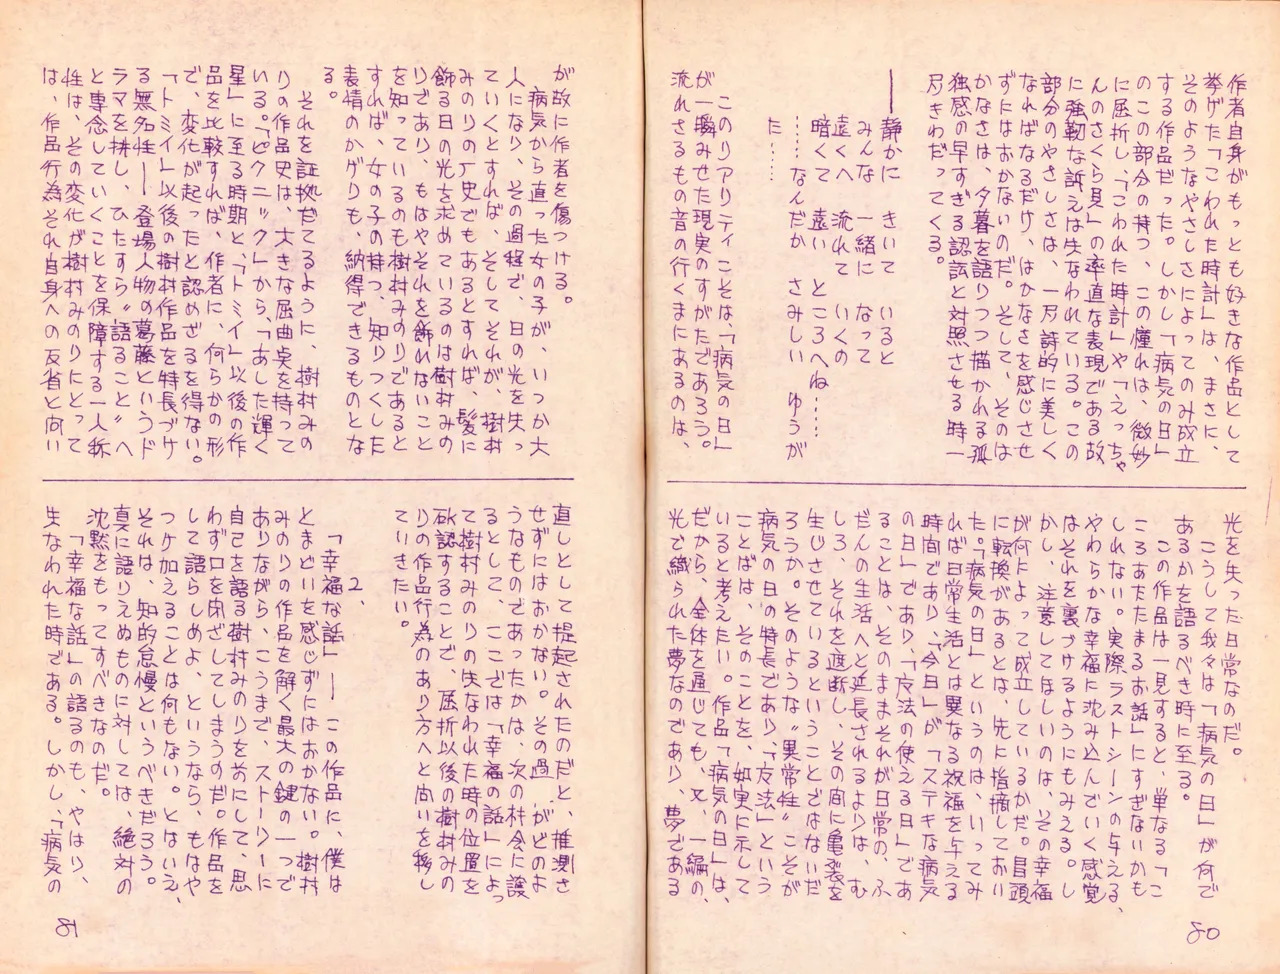 作者自身がもっとも好きな作品として
挙げた「こわれた時計」は、まさに、
そのようなやさしさによってのみ成立
する作品だった。しかし「病気の日」
のこの部分の持つ、この憧れは、微妙
に屈折し、「こわれた時計」や「えっちゃ
んのさくら貝」の率直な表現である故
に強靭な訴えは失なわれている。この
部分のやさしさは、一方詩的に美しく
なればなるだけ、はかなさを感じさせ
ずにはおかないのだ。そして、そのは
かなさは、夕暮を語りつつ描かれる孤
独感の早すぎる認識と対照させる時一
層きわだってくる。
━━静かに きいて いると
みんな 一緒に なって
遠くへ 流れて いくの
暗くて 遠い ところへね……
……なんだか さみしい ゆうが
た……
このリアリティこそは、「病気の日」
が一瞬みせた現実のすがたであろう。
流れさるもの音の行くまにあるのは、
光を失った日常なのだ。
こうして我々は「病気の日」が何で
あるかを語るべき時に至る。
この作品は一見すると、単なる「こ
ころあたたまるお話」にすぎないかも
しれない。実際ラストシーンの与える、
やわらかな幸福に沈み込んでいく感覚
はそれを裏づけるようにもみえる。し
かし、注意してほしいのは、その幸福
が何によって成立しているかだ。目頭
に転換があるとは、先に指摘しておい
た。「病気の日」というのは、いってみ
れば日常生活とは異なる祝福を与える
時間であり、「今日」が「ステキな病気
の日」であり、「魔法の使える日」であ
ることは、そのままそれが日常の、ふ
だんの生活へと延長されるよりは、む
しろ、それを遮断し、その間に亀裂を
生じさせているということではないだ
ろうか。そのような〝異常性〟こそが
病気の日の特長であり、「魔法」という
ことばは、そのことを、如実に示して
いると考えたい。作品「病気の日」は、
だから、全体を通じても、又、一編の、
光で織られた夢なのであり、夢である
80
が故に作者を傷つける。
病気から直った女の子が、いつか大
人になり、その過程で、日の光を失っ
ていくとすれば、そしてそれが、樹村
みのりの歴史でもあるとすれば、髪に
飾る日の光を求めているのは樹村みの
りであり、もはやそれを飾れないこと
を知っているのも樹村みのりであると
すれば、女の子の持つ、知りつくした
表情のかげりも、納得できるものとな
る。
それを証拠だてるように、樹村みの
りの作品史は、大きな屈曲点を持って
いる。「ピクニック」から、「あした輝く
星」に至る時期と、「トミイ」以後の作
品を比較すれば、作者に、何らかの形
で、変化が起ったと認めざるを得ない。
「トミイ」以後の樹村作品を特長づけ
る無名性━━登場人物の葛藤というド
ラマを排し、ひたすら〝語ること〟へ
と専念していくことを保障する一人称
性は、その変化が樹村みのりにとって
は、作品行為それ自身への反省と向い
直しとして提起されたのだと、推測さ
せずにはおかない。その過 がどのよ
うなものであったかは、次の材会に譲
るとして、ここでは「幸福の話」によっ
て樹村みのりの失なわれた時の位置を
確認することで、屈折以後の樹村みの
りの作品行為のあり方へと向いを移し
ていきたい。
2、
「幸福な話」━━この作品に、僕は
とまどいを感じずにはおかない。樹村
みのりの作品を解く最大の鍵の一つで
ありながら、こうまで、ストーリーに
自己を語る樹村みのりを前にして、思
わず口を閉ざしてしまうのだ。作品を
して語らしめよ、というなら、もはや
つけ加えることは何もない。とはいえ、
それは、知的怠慢というべきだろう。
真に語りえぬものに対しては、絶対の
沈黙をもってすべきなのだ。
「幸福な話」の語るのも、やはり、
失なわれた時である。しかし、「病気の
81